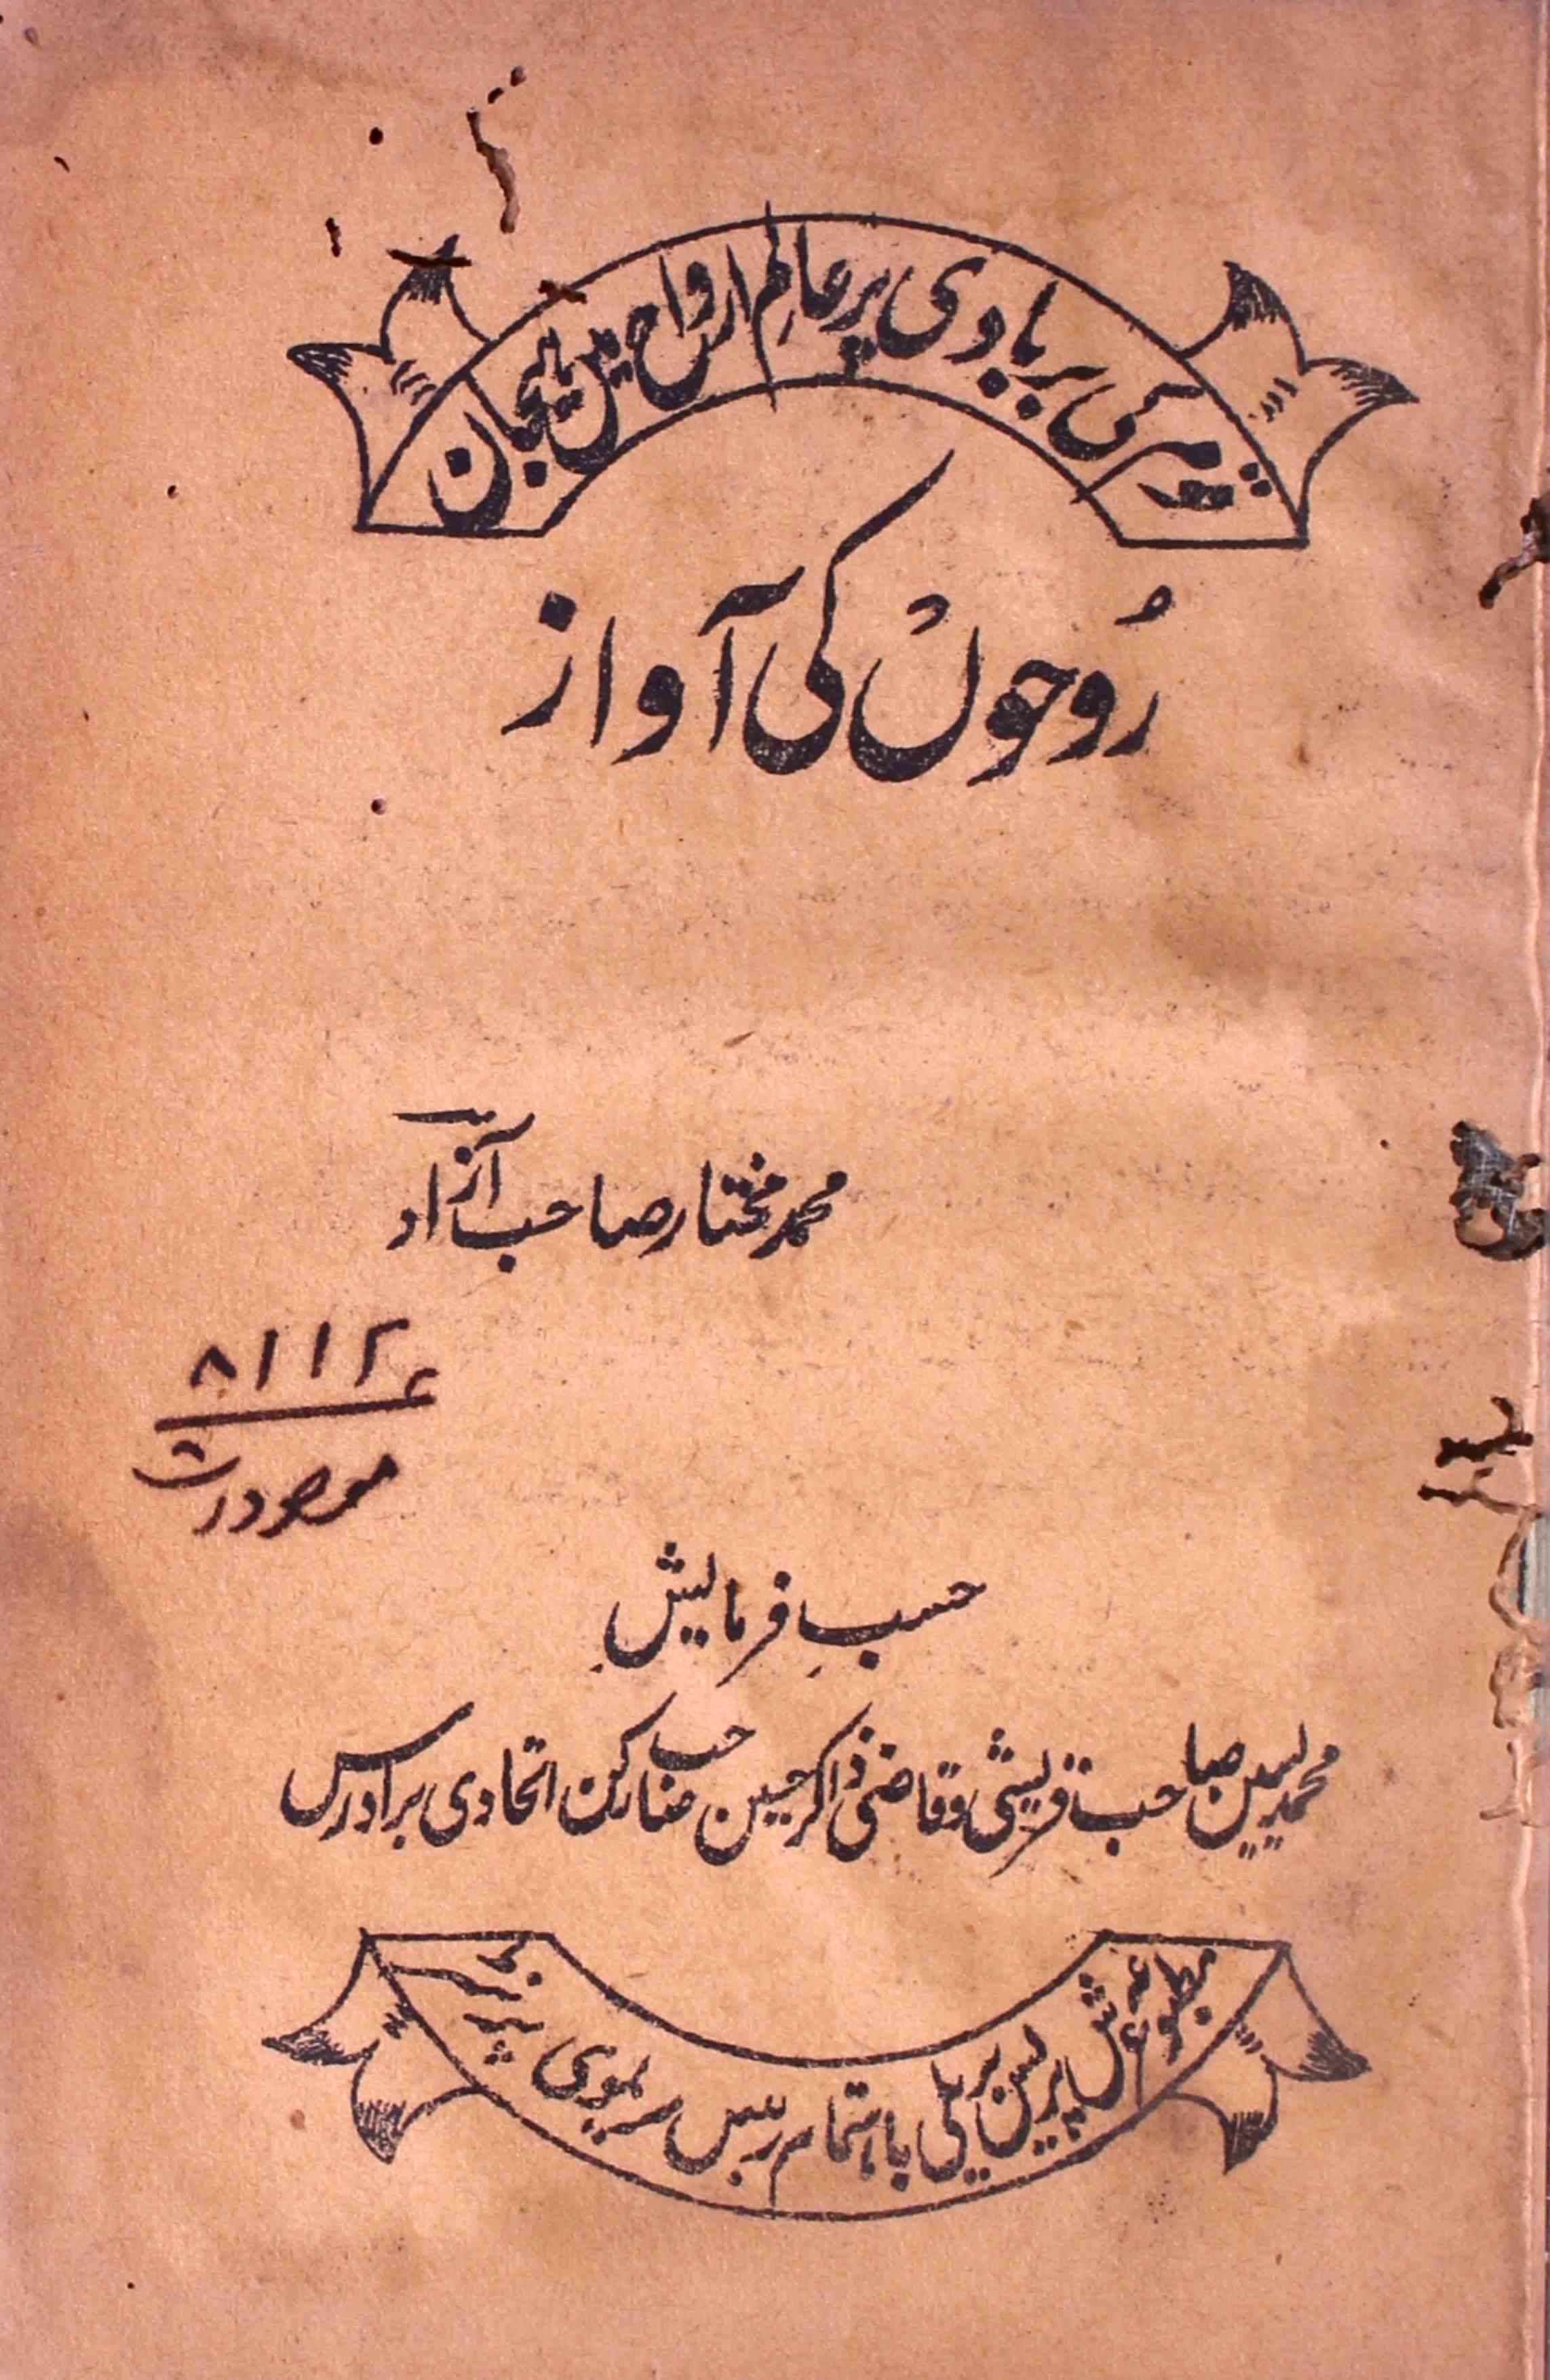 کی بربادی پر عالمِ ارواح میں ہیجان
رُوحوں کی آواز
محمد مختار صاحب آزاد
۸۱۱۲
حسبِ فرمایشِ
محمد یٰسین صاحب قریشی و قاضی ذاکر حسین صاحب ارکن اتحادی برادرس
مطبوعہ پریس بریلی باہتمام بریلوی پرنٹر